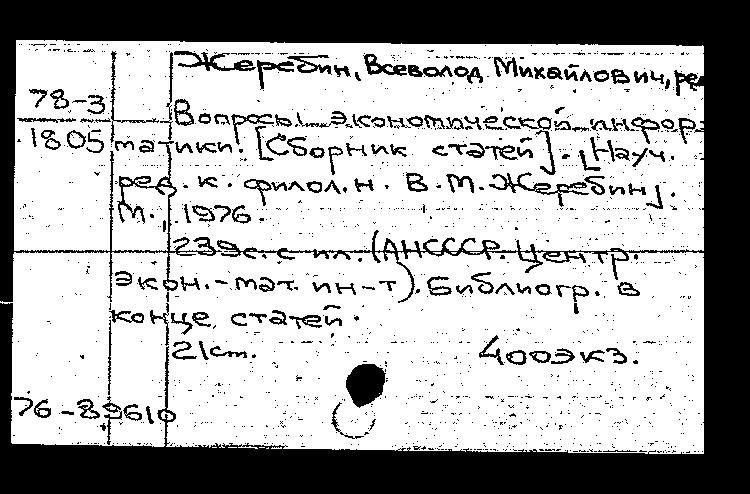 Жеребин, Всеволод Михайлович, ред
78-3
Вопросы экономической инфор-
1805 матики. [Сборник статей]. [Науч.
ред. к. филол. н. В. М. Жеребин].
М., 1976.
239с. с ил. (АНСССР. Центр.
экон.-мат. ин-т). Библиогр. в
конце статей.
21см. 400экз.
76-89610